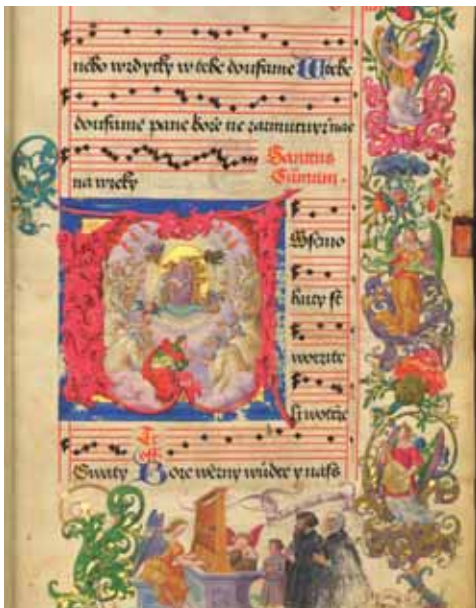 nebo wzdycky w tebe dousame W tebe
dousame pane boze ne zarmutuyž nas
na wieky
Sanctus
Sūmum.
Wssemo
huty st
worzite
li wotče
Tr
Swaty Bože wěrny wůdce y nass